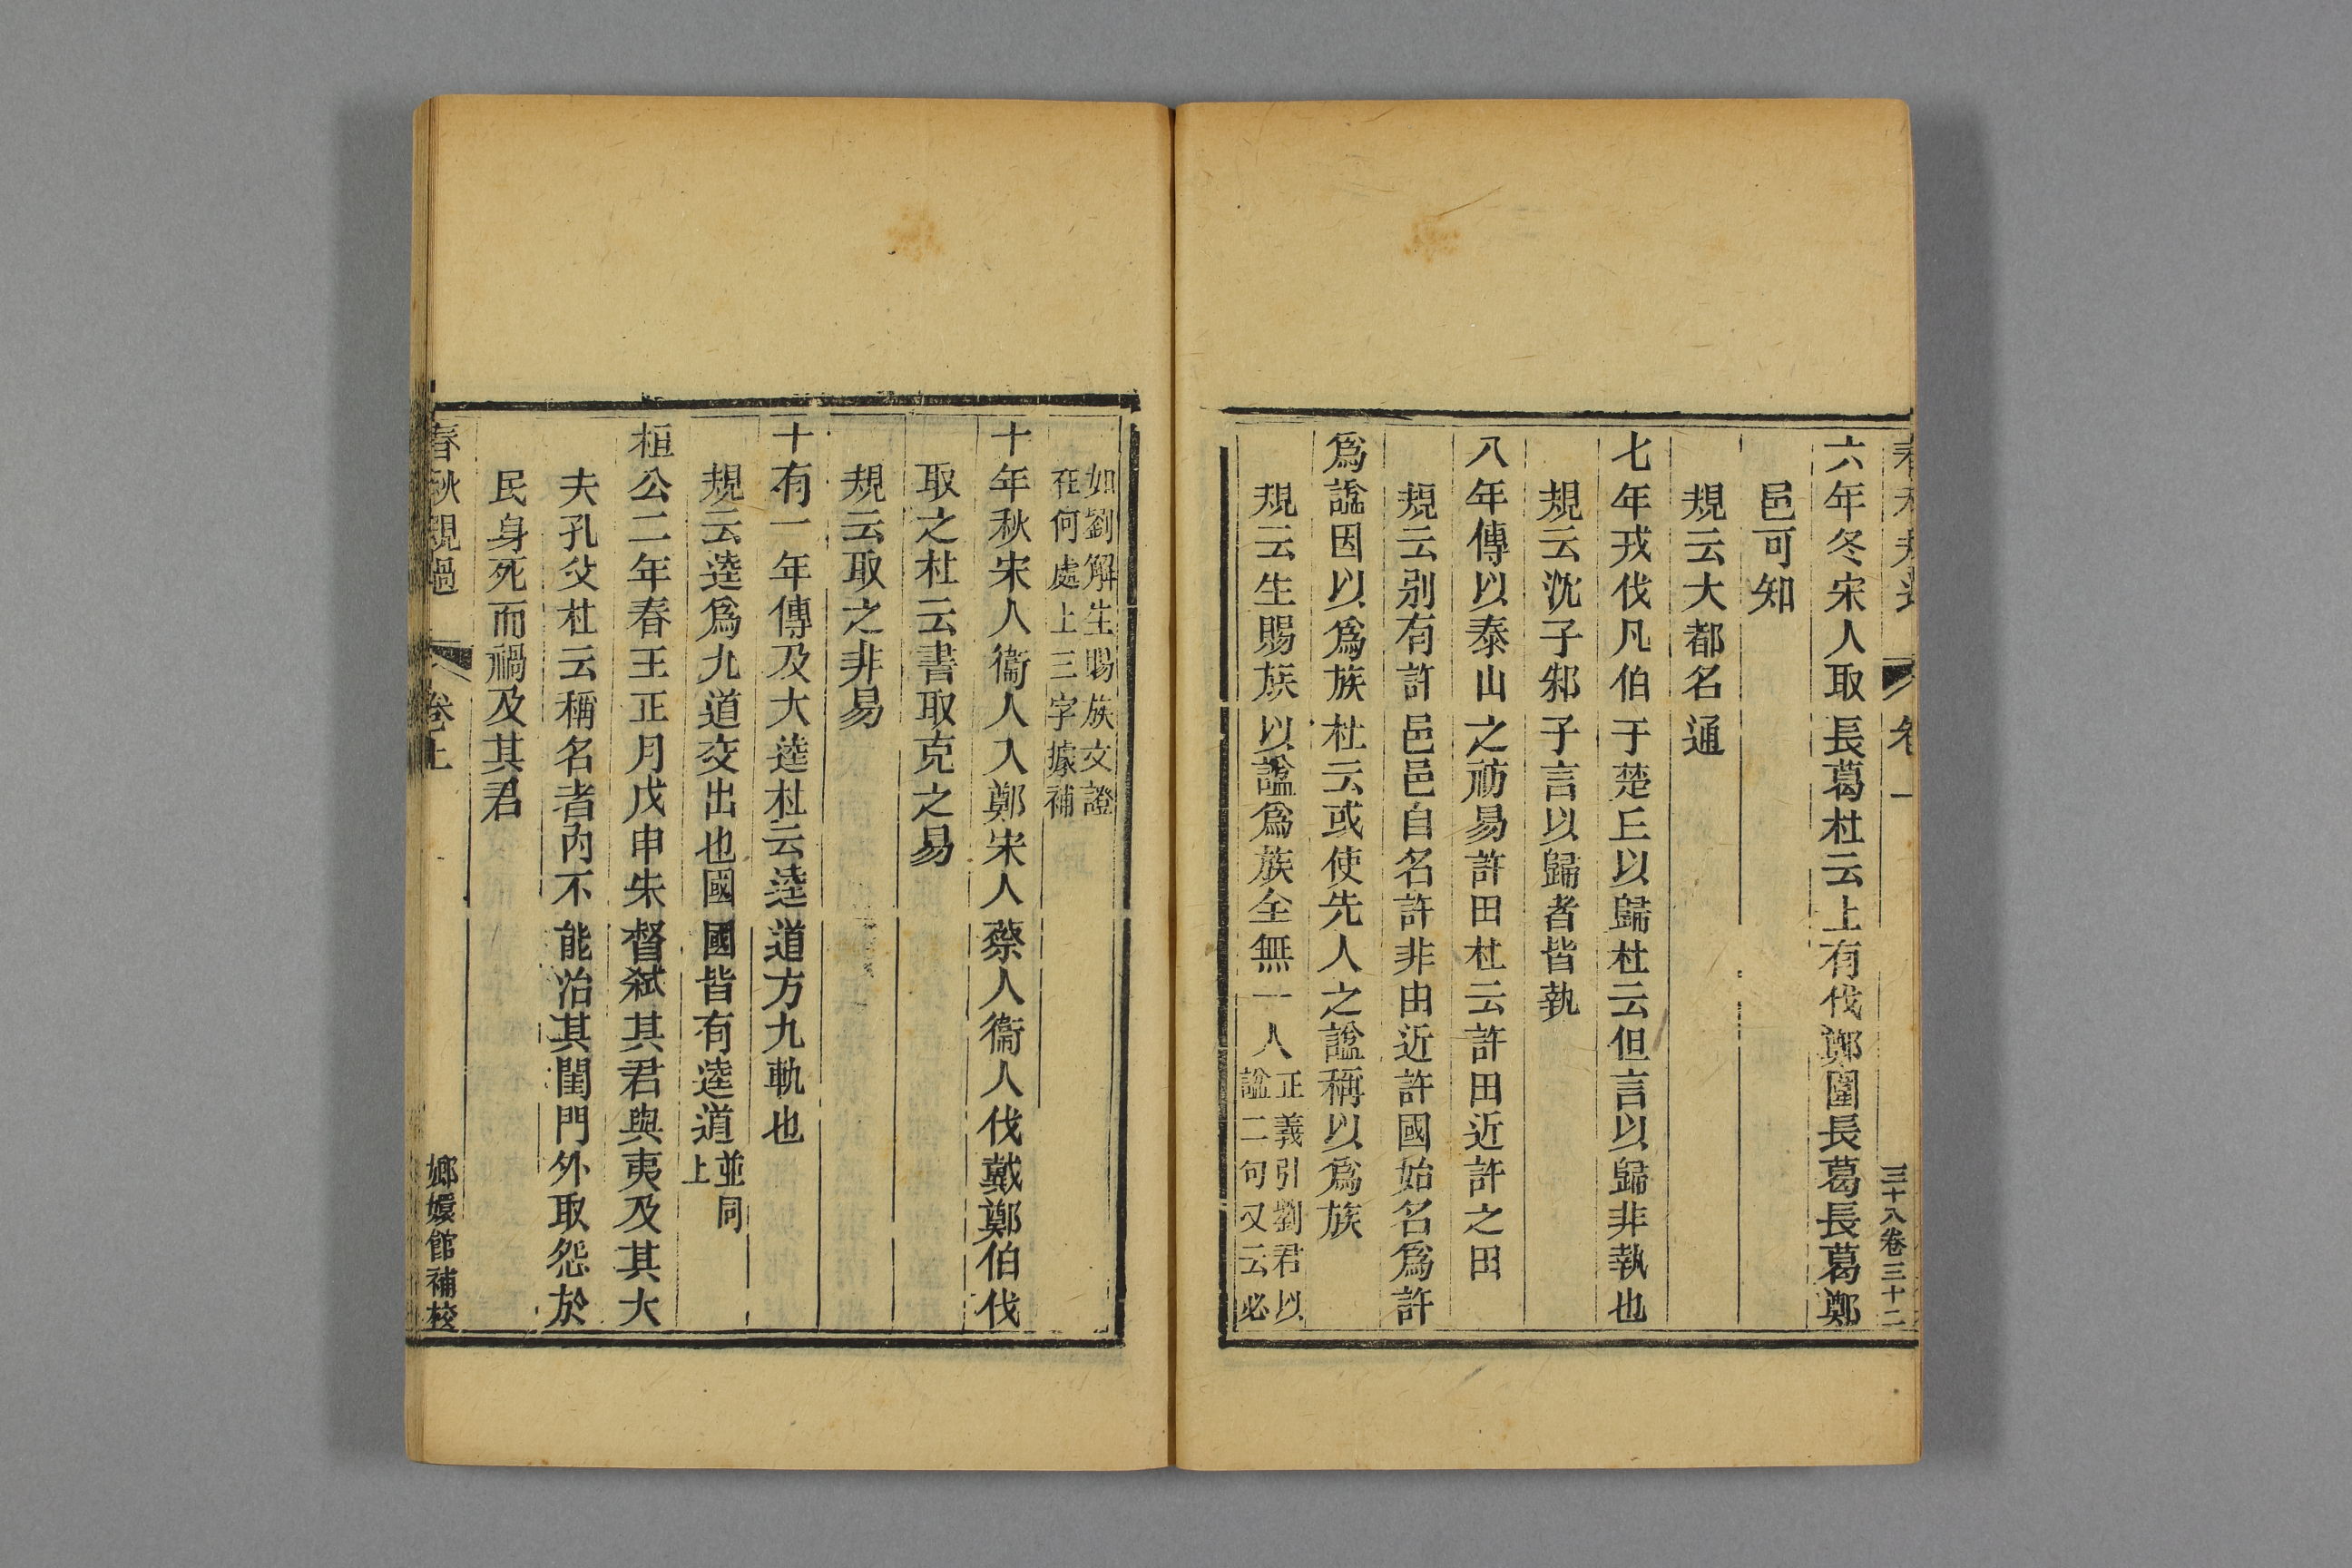 三十八卷三十二
六年冬宋人取長葛杜云上有伐鄭圍長葛長葛鄭
邑可知
規云大都名通
七年戎伐凡伯于楚丘以歸杜云但言以歸非執也
規云沈子邾子言以歸者皆執
八年傳以泰山之祊易許田杜云許田近許之田
規云别有許邑邑自名許非由近許國始名爲許
爲諡因以爲族杜云或使先人之諡稱以爲族
規云生賜族以諡爲族全無一人正義引劉君以
諡二句又云必
如劉解生賜族文證
在何處上三字據補
十年秋宋人衞人入鄭宋人蔡人衞人伐戴鄭伯伐
取之杜云書取克之易
規云取之非易
十有一年傳及大逵杜云逵道方九軌也
規云逵爲九道交出也國國皆有逵道並同
上
桓公二年春王正月戊申宋督弑其君與夷及其大
夫孔父杜云稱名者內不能治其閨門外取怨於
民身死而禍及其君
春秋規過 卷上 嫏嬛館補校